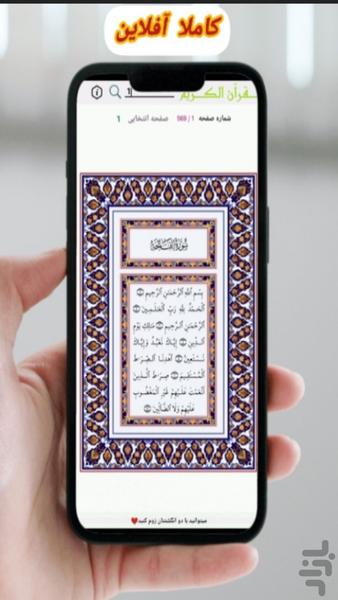 کاملا آفلاین
قرآن الكريم
1
شماره صفحه 1 / 569 صفحه انتخابی 1
سورة الفاتحة
بِسْمِ اللَّهِ الرَّحْمَٰنِ الرَّحِيمِ ۝
الْحَمْدُ لِلَّهِ رَبِّ الْعَالَمِينَ ۝
الرَّحْمَٰنِ الرَّحِيمِ ۝ مَالِكِ يَوْمِ
الدِّينِ ۝ إِيَّاكَ نَعْبُدُ وَإِيَّاكَ
نَسْتَعِينُ ۝ اهْدِنَا الصِّرَاطَ
الْمُسْتَقِيمَ ۝ صِرَاطَ الَّذِينَ
أَنْعَمْتَ عَلَيْهِمْ غَيْرِ الْمَغْضُوبِ
عَلَيْهِمْ وَلَا الضَّالِّينَ ۝
میتوانید با دو انگشتتان زوم کنید❤
بازار